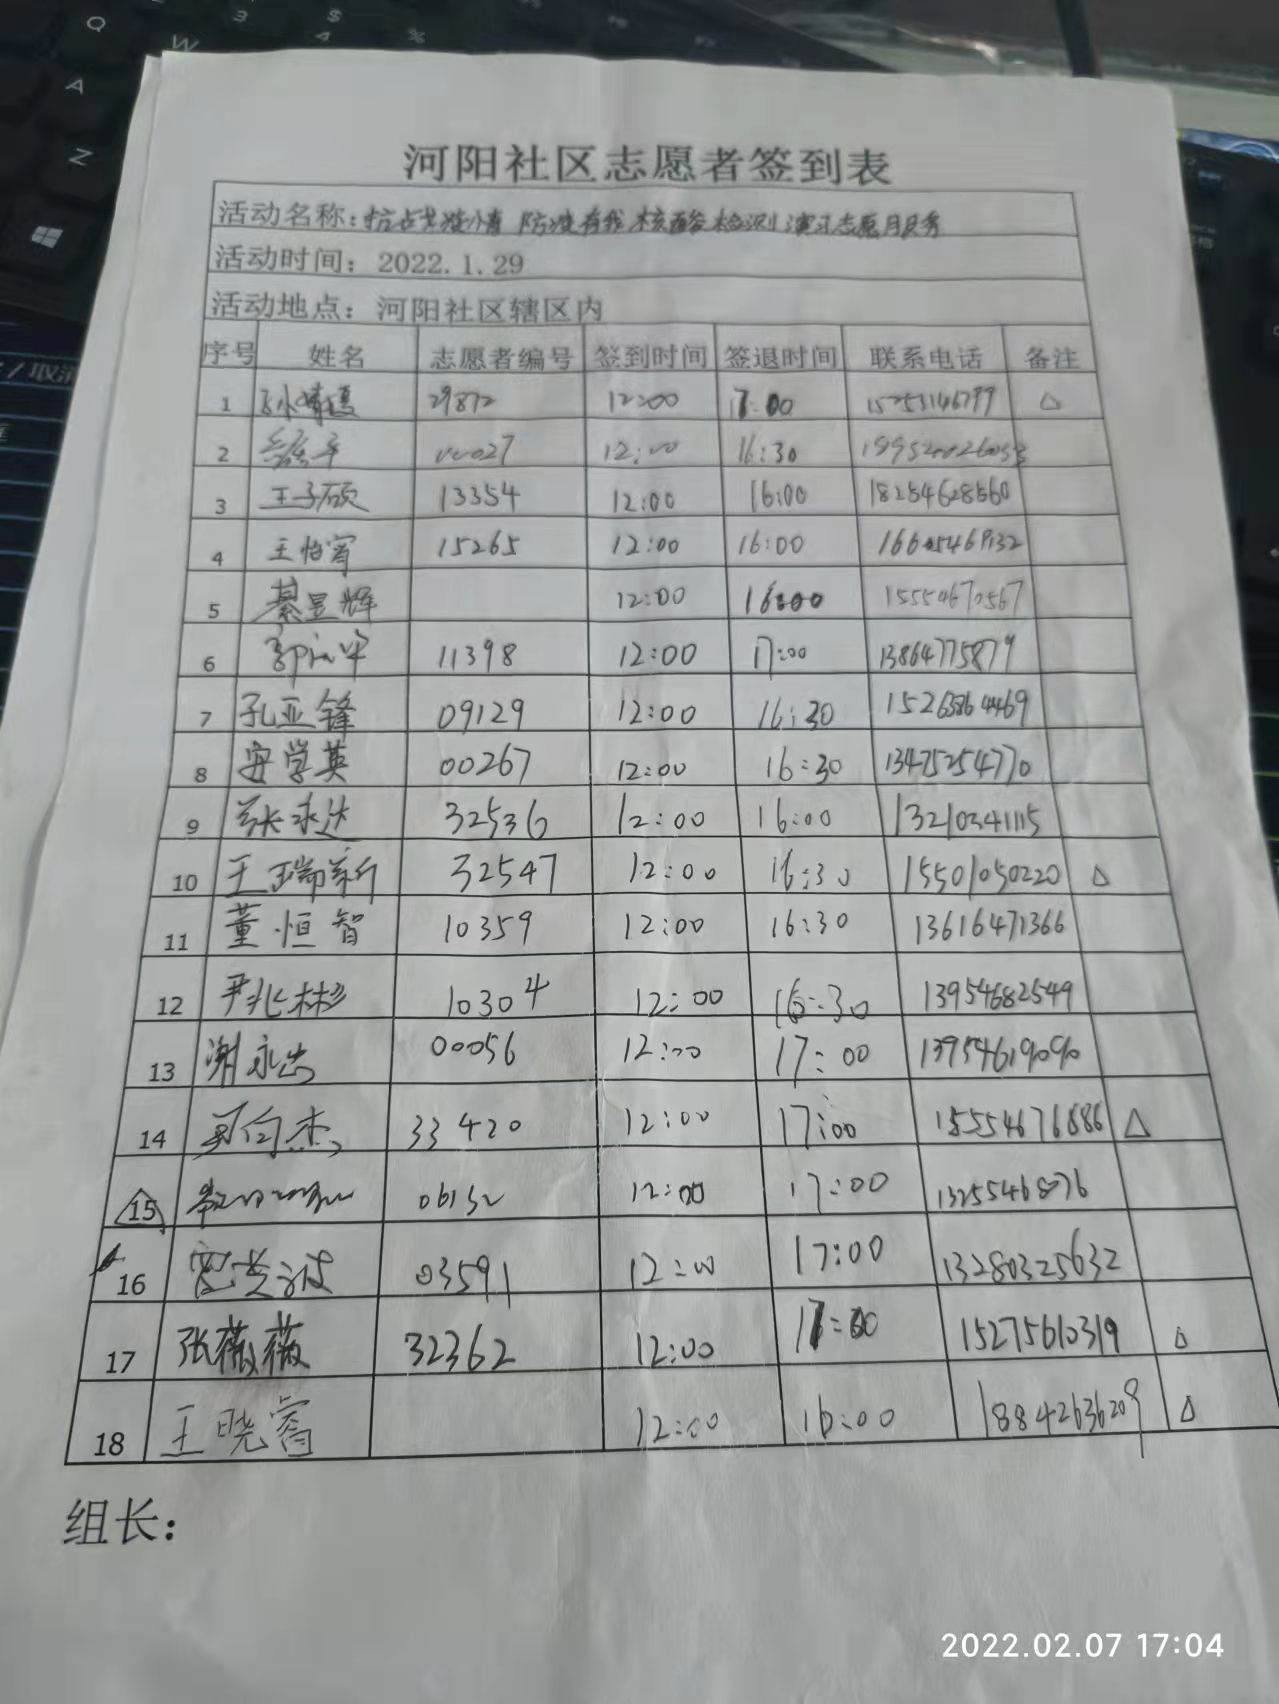 河阳社区志愿者签到表
活动名称：抗击疫情 防疫有我 核酸检测演习志愿服务
活动时间：2022.1.29
活动地点：河阳社区辖区内
序号 姓名 志愿者编号 签到时间 签退时间 联系电话 备注
1 29872 12:00 17:00 15253146799 △
2 00027 12:00 16:30
3 王子硕 13354 12:00 16:00 18254628560
4 王怡宵 15265 12:00 16:00
5 綦昱辉 12:00 16:00 15550670567
6 11398 12:00 17:00 13864775879
7 孔亚锋 09129 12:00 16:30
8 安学英 00267 12:00 16:30 13475254770
9 张永达 32536 12:00 16:00 13210341115
10 王瑞新 32547 12:00 16:30 15501050220 △
11 董恒智 10359 12:00 16:30 13616471366
12 尹兆彬 10304 12:00 16:30 13954682549
13 谢永出 00056 12:00 17:00 13954619090
14 33420 12:00 17:00 15554676686 △
15 12:00 17:00 13255468076
16 03591 12:00 17:00 13280325632
17 张薇薇 32362 12:00 17:00 15275610319 △
18 王晓睿 12:00 16:00 18842636209 △
组长：
2022.02.07 17:04